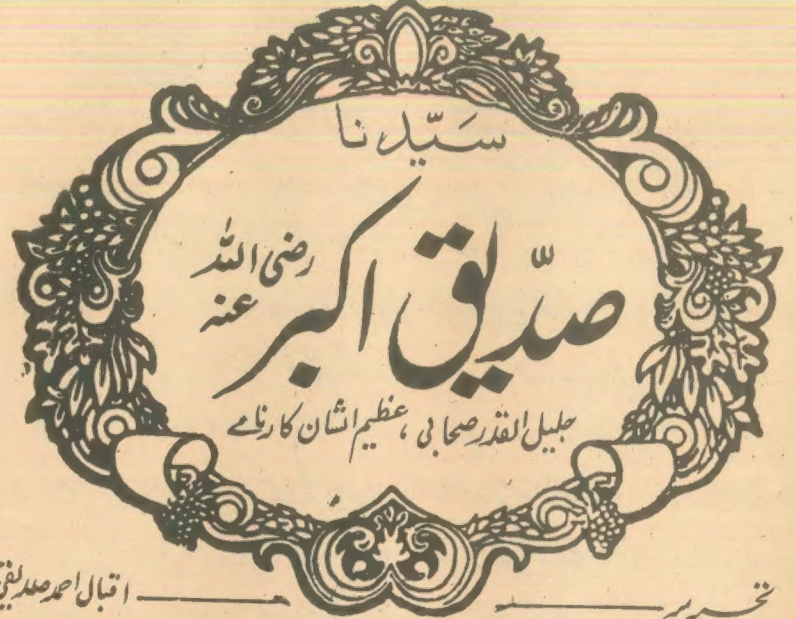 سَیّدنا
صدّیق اکبر رضی اللہ عنہ
جلیل القدر صحابی ، عظیم الشان کارنامے
تحریر ــــــ اقبال احمد صدیقی